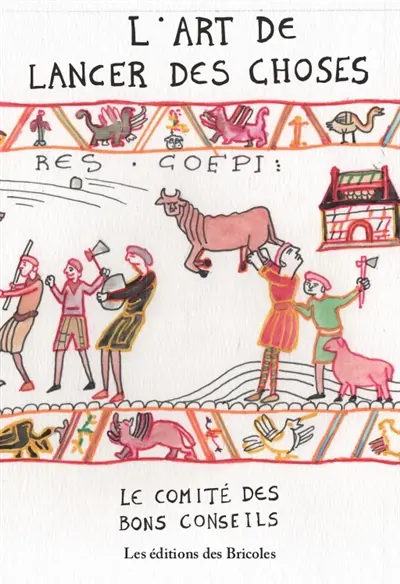 L'ART DE
LANCER DES CHOSES
RES · COEPI :
LE COMITÉ DES
BONS CONSEILS
Les éditions des Bricoles